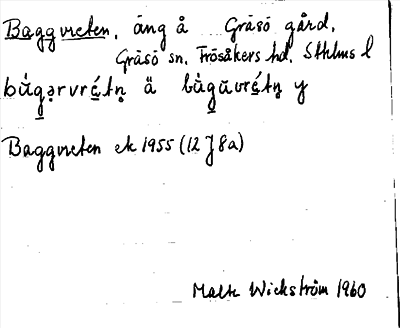 Baggvreten, äng å Gräsö gård,
Gräsö sn. Frösåkers hd. Sthlms l
Baggvreten ek 1955 (12 J 8a)
Malte Wickström 1960